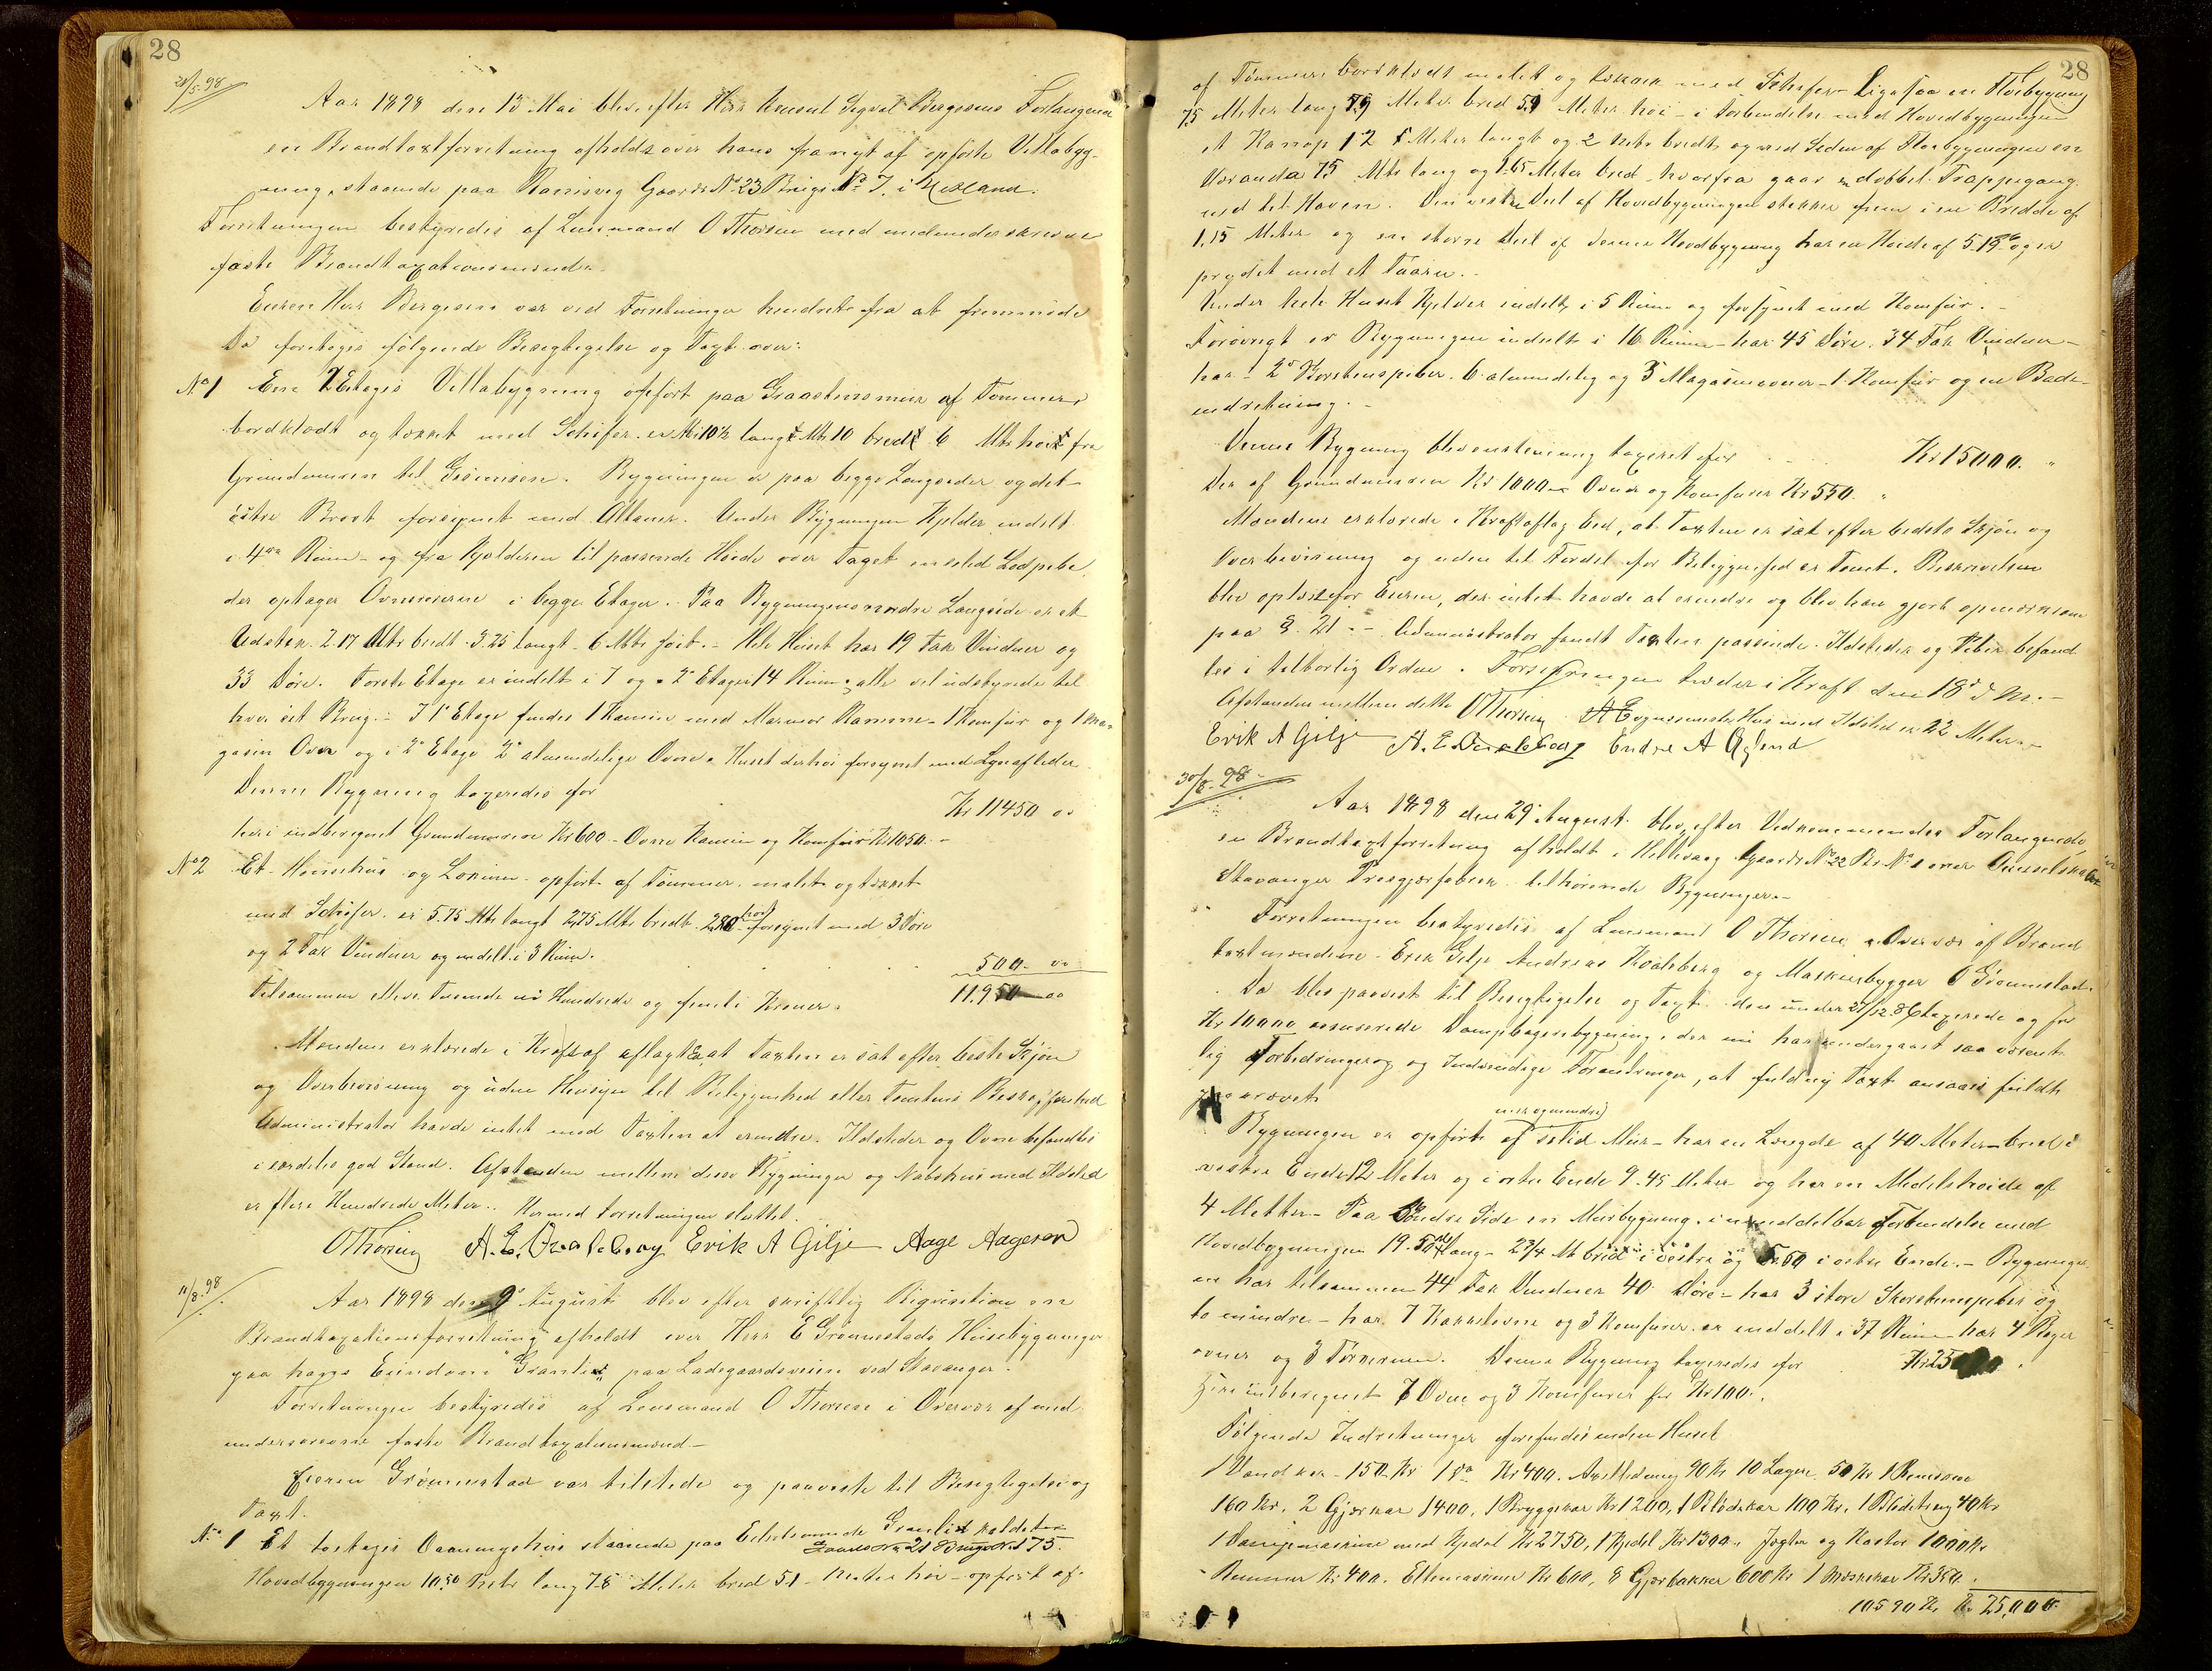 28
28/5.98
Aar 1898 den 13 Mai blev efter Herr Konsul Sigval Bergesens Forlangende
en Brandtaxtforretning afholdt over hans fra nyt af opførte Villabyg-
ning, staaende paa Ramsvig Gaards No 23 Brugs No 7. i Hetland.
Forretningen bestyredes af Lensmand O Thorsen med medunderskrevne
faste Brandtaxationsmænd.
Eieren Herr Bergesen var ved Forretninger hindret fra at fremmøde
Da foretoges følgende Besigtigelse og Taxt over:
No 1 Een 2 Etages Villabygning opført paa Graastensmur af Tømmer,
bordklædt og tækket med Skifer. er Mtr 10½ langt Mtr 10 bredt 6 Mtr høit fra
Grundmuren til Gesimsen. Bygningen er paa begge Langsider og det
østre Brøst forsynet med Altaner. Under Bygningen Kjelder indelt
i 4re Rum - og fra Kjelderen til passende Høide over Taget en solid Lodpibe
der optager Ovnrørene i begge Etager. Paa Bygningens nordre Langside er et
Udstik 2.17 Mtr bredt 3.25 langt - 6 Mtr høit. - Hele Huset har 19 Fak Vinduer og
33 Døre. Første Etage er indelt i 7 og 2den Etage i 14 Rum, alle vel udstyrede til
hver sit Brug. - I 1ste Etage findes 1 Kamin med Marmor Ramme - 1 Komfur og 1 Ma-
gasin Ovn og i 2den Etage 2 almindelige Ovne. Huset derhos forsynet med Lynafleder
Denne Bygning taxeredes for Kr 11450 00
heri indberegnet Grundmuren Kr 600 - Ovne Kamin og Komfur Kr 1050. -
No 2 Et Hønsehus og Lokum opført af Tømmer malet og tækket
med Skifer. er 5.75 Mtr langt 2,75 Mtr bredt 2,80 høit forsynet med 3 Døre
og 2 Fak Vinduer og indelt i 3 Rum. 500. 00
Tilsammen Elleve Tusende ni Hundrede og femti Kroner. 11.950 00
Mændene erklærede i Kraft af aflagt Ed, at Taxten er sat efter beste Skjøn
og Overbevisning og uden Hensyn til Beliggenhed eller Tomtens Beskaffenhed
Administrator havde intet mod Taxten at erindre. Ildsteder og Ovne befandtes
i særdeles god Stand. Afstanden mellem disse Bygninger og Nabohus med Ildsted
er flere Hundrede Meter. Hermed Forretningen sluttet.
OThorsen A. E. Kvaleberg Erik A Gilje Aage Aageson
11/8.98
Aar 1898 den 9de August blev efter skriftlig Rigvisition en
Brandtaxationsforretning afholdt over Herr E Grønnestads Husebygninger
paa hans Eiendom "Granli" paa Ladegaardsveien ved Stavanger.
Forretningen bestyredes af Lensmand O Thorsen i Overvær af med
underskrevne faste Brandtaxationsmænd -
Eieren Grønnestad var tilstede og paaviste til Besigtigelse og
Taxt.
No 1 Et toetages Vaaningshus staaende paa Granli kaldet
Gaards No 21 Brugs No 175.
Hovedbygningen 10.50 Meter lang 7.8 Meter bred 5.1 Meter høi - opført af
28
af Tømmer bordklædt malet og tækket med Skifer - Ligesaa en Fløibygning
7.5 Meter lang 7.9 Meter bred 5.9 Meter høi - i Forbindelse med Hovedbygningen
et Karnap 1.2 Meter langt og 2 Meter bredt og ved Siden af Fløibygningen en
Veranda 7.5 Mtr lang og 1.65 Meter bred - hvorfra gaar en dobbel Trappegang
ned til Haven. Den vestre Deel af Hovedbygningen stikker frem i en Bredde af
1.15 Meter og en større Deel af denne Hovedbygning har en Høide af 5.15 og er
prydet med et Taarn. -
Under hele Huset Kjelder indelt i 5 Rum og forsynet med Komfur. -
Forøvrigt er Bygningen indelt i 16 Rum - har 45 Døre. 34 Fak Vinduer -
har 2 Skorstenspiber. 6 almindelig og 3 Magasinovner - 1 Komfur og en Bade-
indretning. -
Denne Bygning blev enstemmig taxeret for Kr 15000.
Der af Grundmuren Kr 1000 - Ovner og Komfurer Kr 550.
Mændene erklærede i Kraft aflag Eed, at Taxten er sat efter bedste Skjøn og
Overbevisning og uden til Fordel for Beliggenhed er Tomt. Beskrivelsen
blev oplæst for Eieren, der intet havde at erindre og blev han gjort opmærksom
paa § 21. - Administrator fandt Taxten passende. Ildsteder og Piber befand
tes i tilbørlig Orden. Forsikringen træder i Kraft den 18 d. M. -
Afstanden mellem dette Hus med Ildsted er 22 Meter -
OThorsen
Erik A Gilje A. E. Kvaleberg Endre A
30/8.98
Aar 1898 den 29 August blev efter Vedkommendes Forlangende
en Brandtaxtforretning afholdt i Hillevaag Gaards No 22 Br. No 1 over
Stavanger Presgjærfabrik tilhørende Bygninger. -
Forretningen bestyredes af Lensmand O Thorsen i Overvær af Brand
taxtmændene Erik Gilje Andreas Kvaleberg og Maskinbygger O Grønnestad.
Da blev paavist til Besigtigelse og Taxt den under 27/12 86 taxerede og for
Kr 10000 assurerede Dampbageribygning, der nu har undergaaet saa væsent
lig Forbedringer og Indvendige Forandringer, at fuld ny Taxt ansaaes fuldt
paakrævet
Bygningen er opført af solid Mur - har en Længde af 40 Meter - bred i
vestre Ende 12 Meter og i østre Ende 9.45 Meter og har en Middelshøide af
4 Metter - Paa Søndre Side en Murbygning i umiddelbar Forbindelse med
Hovedbygningen 19.50 Mtr lang - 2¾ Mt bred i vestre og 5.50 i østre Ende. - Bygningen
en har tilsammen 44 Fak Vinduer 40 Døre - har 3 store Skorstenspiber og
to mindre - har 7 Kakkelovne og 3 Komfurer er inddelt i 37 Rum - har 4 Bager
ovner og 3 Tørkerum. Denne Bygning taxeredes for Kr 25
Heri indberegnet 7 Ovne og 3 Komfurer for Kr 100.
Følgende Indretninger forefindes inden Huset
1 Vandkar - 150 Kr 1 do Kr 400. Axelledning 90 Kr 10 Lagere 50 Kr
160 Kr, 2 Gjærkar 1400, 1 Bryggekar Kr 1200, 1 Blødekar 100 Kr, 40 Kr
1 Dampmaskine med Kjedel Kr 2750, 1 Kjedel Kr 1300, 1000 Kr
Remmer Kr 400. Eltemaskiner Kr 600, 8 Gjærbakker 600 Kr 1 Mæskekar Kr 350.
10590 Kr Kr 25,000